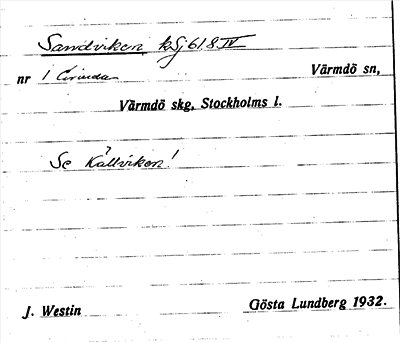 Sandviken kSj 618 IV
nr 1 Grinda Värmdö sn,
Värmdö skg, Stockholms l.
Se Källviken!
J. Westin Gösta Lundberg 1932.